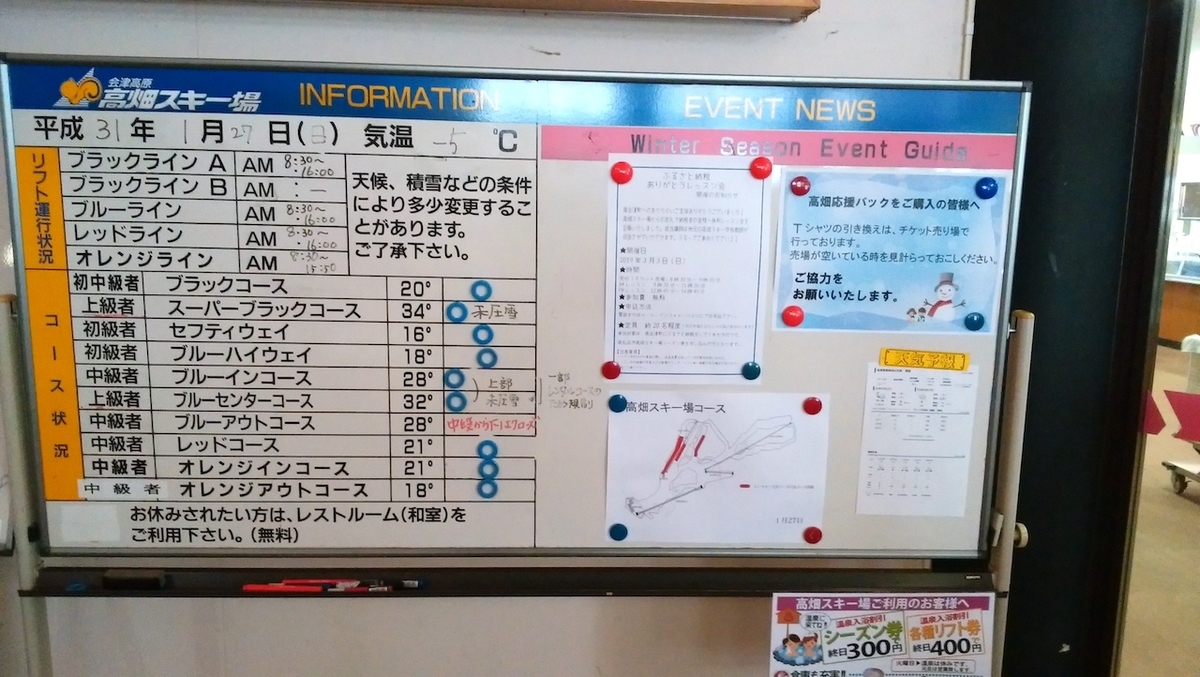 会津高原
高畑スキー場
INFORMATION
平成 31 年 1月 27 日(日) 気温 -5 ℃
リフト運行状況
ブラックライン A AM 8:30~16:00
ブラックライン B AM : —
ブルーライン AM 8:30~16:00
レッドライン AM 8:30~16:00
オレンジライン AM 8:30~15:50
天候、積雪などの条件
により多少変更するこ
とがあります。
ご了承下さい。
コース状況
初中級者 ブラックコース 20°
上級者 スーパーブラックコース 34° 未圧雪
初級者 セフティウェイ 16°
初級者 ブルーハイウェイ 18°
中級者 ブルーインコース 28° 上部
上級者 ブルーセンターコース 32° 未圧雪
一部
中級者 ブルーアウトコース 28°
中級者 レッドコース 21°
中級者 オレンジインコース 21°
中級者 オレンジアウトコース 18°
お休みされたい方は、レストルーム(和室)を
ご利用下さい。(無料)
EVENT NEWS
Winter Season Event Guide
ふるさと納税
ありがとうレッスン会
開催のお知らせ
★開催日
2019年3月3日(日)
★時間
★参加費 無料
★申込方法
★定員 約20名程度
高畑応援パックをご購入の皆様へ
Tシャツの引き換えは、チケット売り場で
行っております。
売場が空いている時を見計らっておこしください。
ご協力を
お願いいたします。
天気予報
高畑スキー場コース
1月27日
高畑スキー場ご利用のお客様へ
温泉に来てね!!
温泉入浴割引
シーズン券で
終日300円
温泉入浴割引
各種リフト券で
終日400円
火曜日▶温泉は休みです。
食事も充実!!